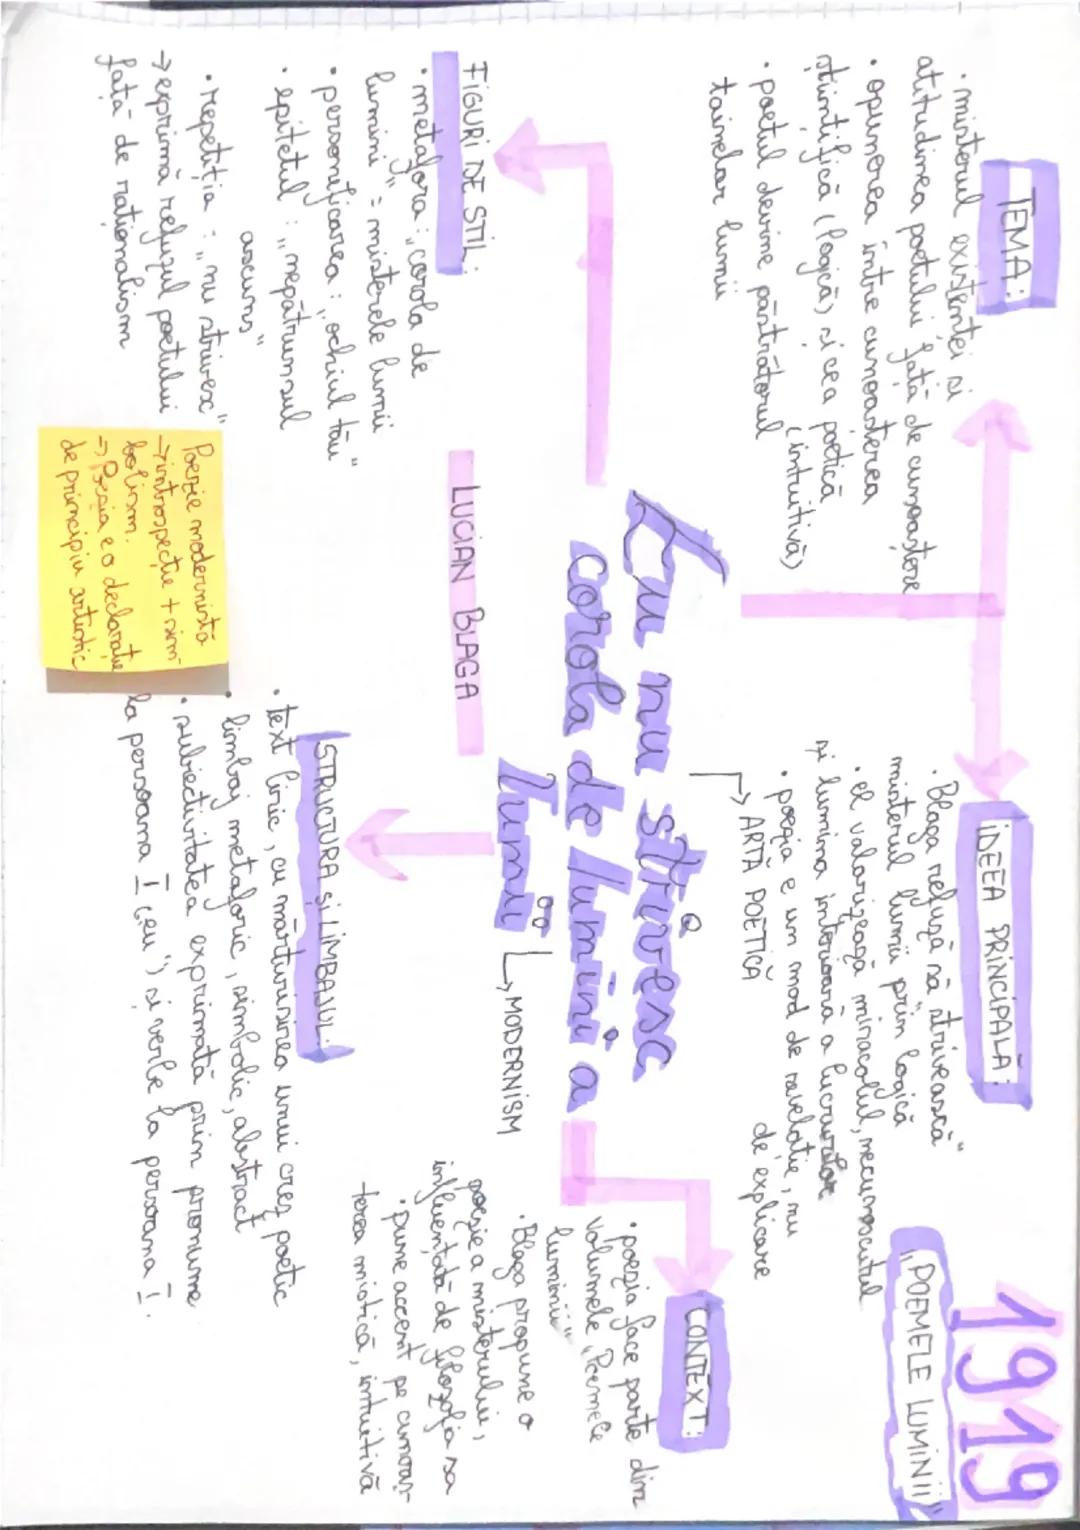 1919
„POEMELE LUMINII”
TEMA:
• misterul existenței și
atitudinea poetului față de cunoaștere
• opunerea între cunoașterea
științifică (logică) și cea poetică
(intuitivă)
• poetul devine păstrătorul
tainelor lumii
IDEEA PRINCIPALĂ:
• Blaga refuză să „strivească”
misterul lumii prin logică
• el valorizează miracolul, necunoscutul
și lumina interioară a lucrurilor
• poezia e un mod de revelație, nu
de explicare
→ ARTĂ POETICĂ
Eu nu strivesc
corola de lumini a
lumii
→ MODERNISM
LUCIAN BLAGA
CONTEXT:
• poezia face parte din
volumele „Poemele
luminii”
• Blaga propune o
poezie a misterului,
influențată de filozofia sa
• pune accent pe cunoaș-
terea mistică, intuitivă
FIGURI DE STIL:
• metafora: „corola de
lumini” = misterele lumii
• personificarea: „ochiul tău”
• epitetul: „nepătrunsul
ascuns”
• repetiția: „nu strivesc”
→ exprimă refuzul poetului
față de raționalism
STRUCTURA ȘI LIMBAJUL:
• text liric, cu mărturisirea unui crez poetic
• limbaj metaforic, simbolic, abstract
• subiectivitatea exprimată prin pronume
la persoana I („eu”) și verbe la persoana I.
Poezie modernistă
→ introspecție + sim-
bolism.
→ Poezia e o declarație
de principiu artistic